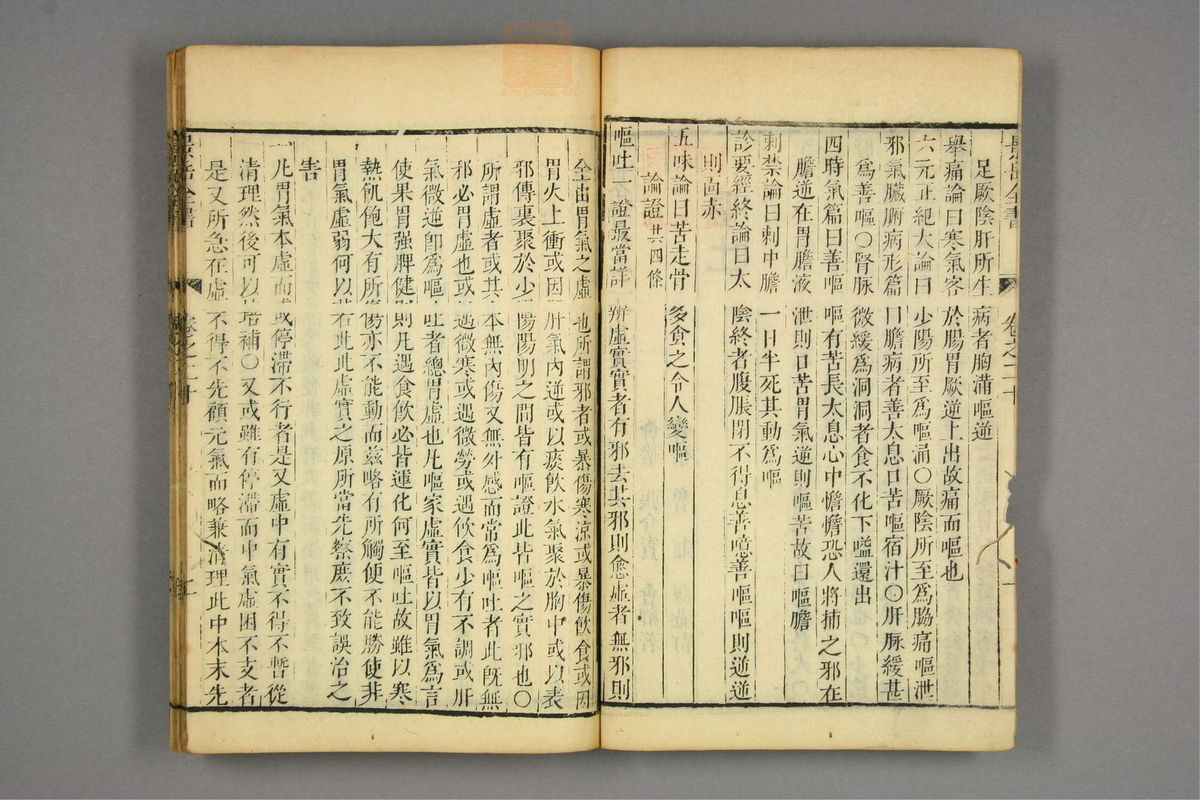 足厥陰肝所生病者胸滿嘔逆
舉痛論曰寒氣客於腸胃厥逆上出故痛而嘔也
六元正紀大論曰少陽所至爲嘔涌○厥陰所至爲脇痛嘔泄
邪氣臟腑病形篇曰膽病者善太息口苦嘔宿汁○肝脉緩甚
爲善嘔○腎脉微緩爲洞洞者食不化下嗌還出
四時氣篇曰善嘔嘔有苦長太息心中憺憺恐人將捕之邪在
膽逆在胃膽液泄則口苦胃氣逆則嘔苦故曰嘔膽
刺禁論曰刺中膽一日半死其動爲嘔
診要經終論曰太陰終者腹脹閉不得息善噫善嘔嘔則逆逆
則面赤
五味論曰苦走骨多食之令人變嘔
論證共四條
嘔吐一證最當詳辨虛實實者有邪去其邪則愈虛者無邪則
全由胃氣之虛也所謂邪者或暴傷寒涼或暴傷飲食或因
胃火上衝或因肝氣內逆或以痰飲水氣聚於胸中或以表
邪傳裏聚於少陽陽明之間皆有嘔證此皆嘔之實邪也○
所謂虛者或其本無內傷又無外感而常爲嘔吐者此旣無
邪必胃虛也或遇微寒或遇微勞或遇飲食少有不調或肝
氣微逆卽爲嘔吐者總胃虛也凡嘔家虛實皆以胃氣爲言
使果胃强脾健則凡遇食飲必皆運化何至嘔吐故雖以寒
熱飢飽大有所傷亦不能動而茲略有所觸便不能勝使非
胃氣虛弱何以若此此虛實之原所當先察庶不致誤治之
害
一凡胃氣本虛而或停滯不行者是又虛中有實不得不暫從
清理然後可以培補○又或雖有停滯而中氣虛困不支者
是又所急在虛不得不先顧元氣而略兼清理此中本末先
景岳全書
卷之二十
景岳全書
卷之二十